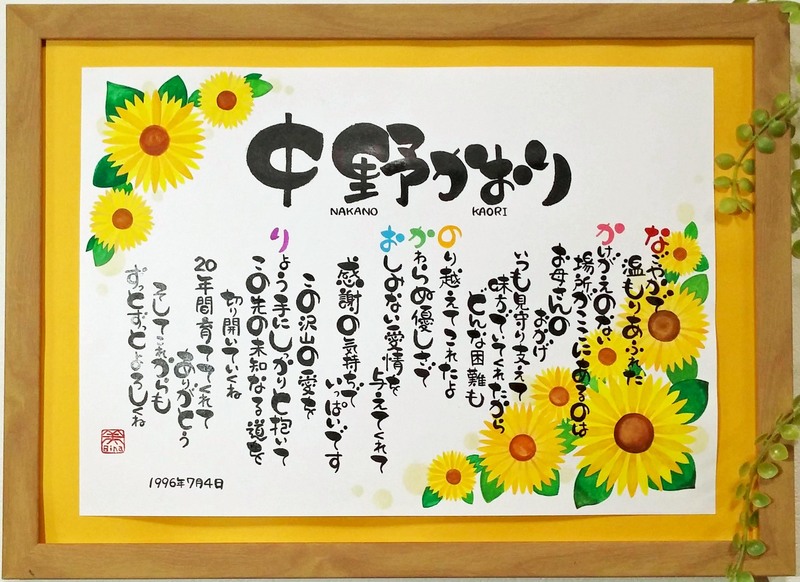 中野かおり
NAKANO KAORI
なごやかで
温もりあふれた
かけがえのない
場所がここにあるのは
お母さんの
おかげ
いつも見守り支えて
味方でいてくれたから
どんな困難も
のり越えてこれたよ
かわらぬ優しさで
おしみない愛情を
与えてくれて
感謝の気持ちで
いっぱいです
この沢山の愛を
りょう手にしっかりと抱いて
この先の未知なる道を
切り開いていくね
20年間育ててくれて
ありがとう
そしてこれからも
ずっとずっとよろしくね
1996年7月4日